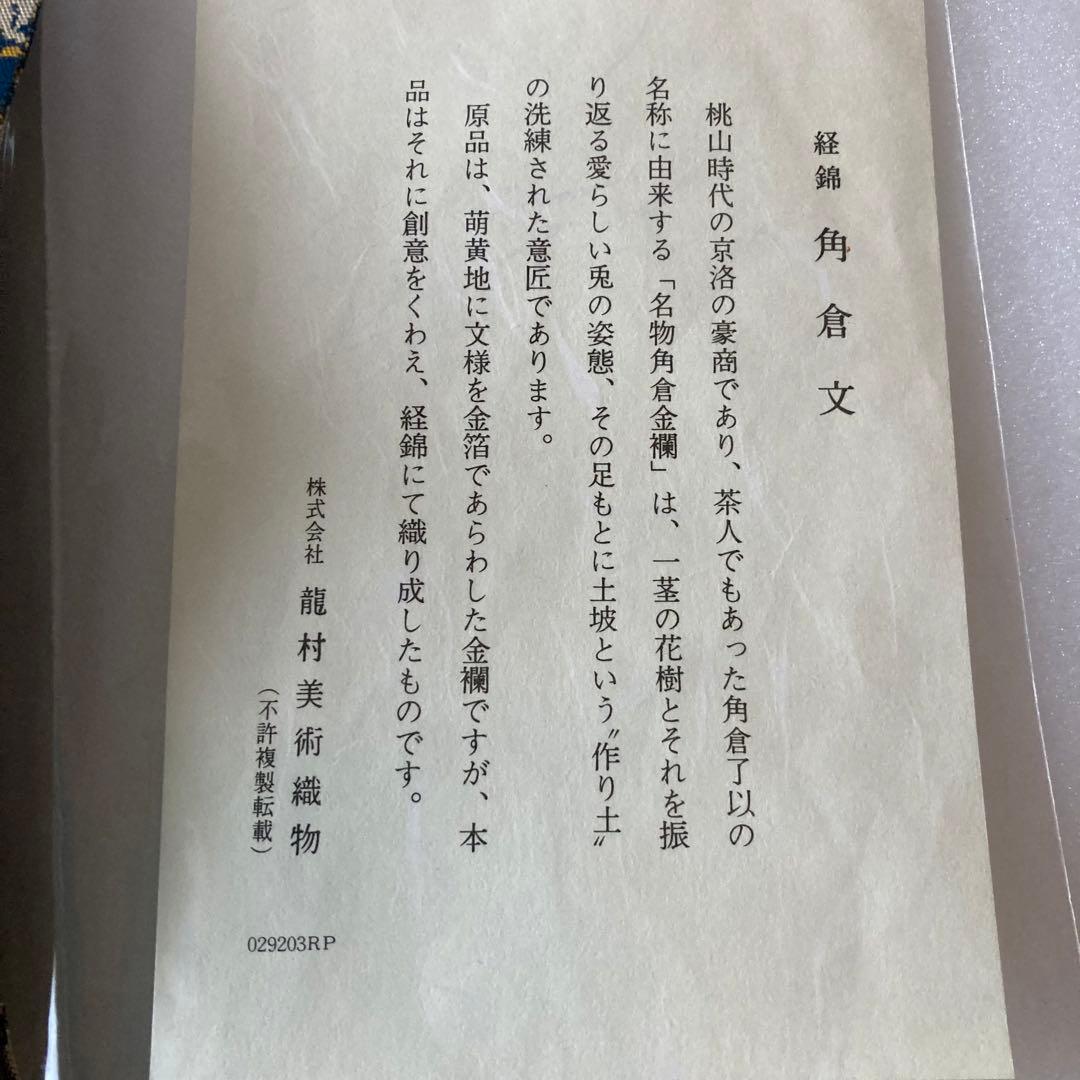 経錦 角倉文
桃山時代の京洛の豪商であり、茶人でもあった角倉了以の
名称に由来する「名物角倉金襴」は、一茎の花樹とそれを振
り返る愛らしい兎の姿態、その足もとに土坡という〝作り土〟
の洗練された意匠であります。
原品は、萌黄地に文様を金箔であらわした金襴ですが、本
品はそれに創意をくわえ、経錦にて織り成したものです。
株式会社 龍村美術織物
（不許複製転載）
029203RP